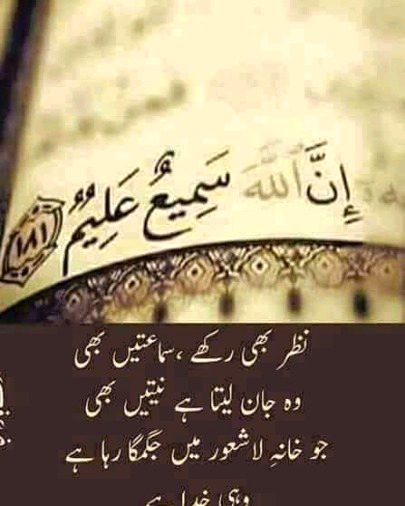 إِنَّ ٱللَّهَ سَمِيعٌ عَلِيمٌ ١٨١
نظر بھی رکھے ،سماعتیں بھی
وہ جان لیتا ہے نیتیں بھی
جو خانہِ لاشعور میں جگمگا رہا ہے
وہی خدا ہے